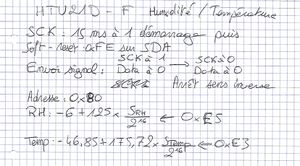 HTU21D-F Humidité / Température
SCK : 15 ms à 1 démarrage puis
Soft-reset 0xFE sur SDA
Envoi signal : SCK à 1 → SCK à 0
Data à 0 Data à 0
Arrêt sens inverse
Adresse : 0x80
RH : -6 + 125 × SRH / 2^16 ← 0xE5
Temp : -46,85 + 175,72 × STemp / 2^16 ← 0xE3